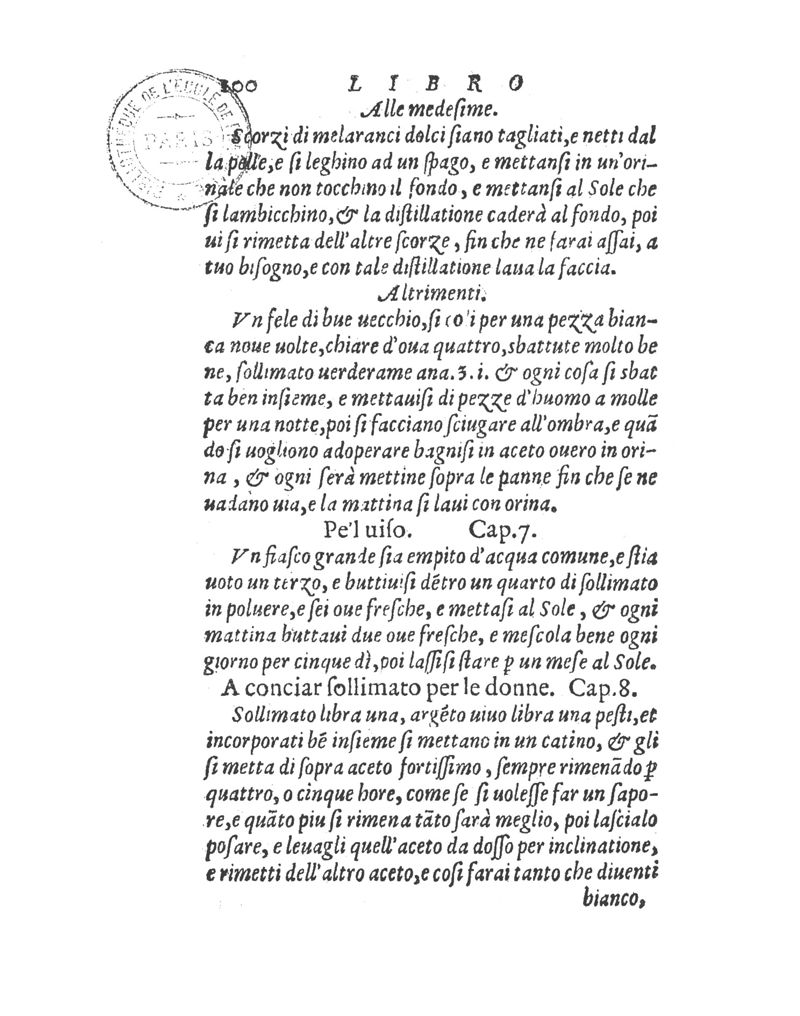 200 LIBRO
BIBLIOTHEQUE DE L'ECOLE DE
PARIS
Alle medeſime.
Scorzi di melaranci dolci ſiano tagliati, e netti dal
la pelle, e ſi leghino ad un ſpago, e mettanſi in un'ori-
nale che non tocchino il fondo, e mettanſi al Sole che
ſi lambicchino, & la diſtillatione caderà al fondo, poi
ui ſi rimetta dell'altre ſcorze, fin che ne farai aſſai, a
tuo biſogno, e con tale diſtillatione laua la faccia.
Altrimenti.
Vn fele di bue uecchio, ſi coli per una pezza bian-
ca noue uolte, chiare d'oua quattro, sbattute molto be
ne, ſollimato uerderame ana.ʒ.i. & ogni coſa ſi sbat
ta ben inſieme, e mettauiſi di pezze d'huomo a molle
per una notte, poi ſi facciano ſciugare all'ombra, e quã
do ſi uogliono adoperare bagniſi in aceto ouero in ori-
na, & ogni ſerà mettine ſopra le panne fin che ſe ne
uadano uia, e la mattina ſi laui con orina.
Pe'l uiſo. Cap.7.
Vn fiaſco grande ſia empito d'acqua comune, e ſtia
uoto un terzo, e buttiuiſi dẽtro un quarto di ſollimato
in poluere, e ſei oue freſche, e mettaſi al Sole, & ogni
mattina buttaui due oue freſche, e meſcola bene ogni
giorno per cinque dì, poi laſſiſi ſtare ꝑ un meſe al Sole.
A conciar ſollimato per le donne. Cap.8.
Sollimato libra una, argẽto uiuo libra una peſti, et
incorporati bẽ inſieme ſi mettano in un catino, & gli
ſi metta di ſopra aceto fortiſſimo, ſempre rimenãdo ꝑ
quattro, o cinque hore, come ſe ſi uoleſſe far un ſapo-
re, e quãto piu ſi rimena tãto ſarà meglio, poi laſcialo
poſare, e leuagli quell'aceto da doſſo per inclinatione,
e rimetti dell'altro aceto, e coſi farai tanto che diuenti
bianco,